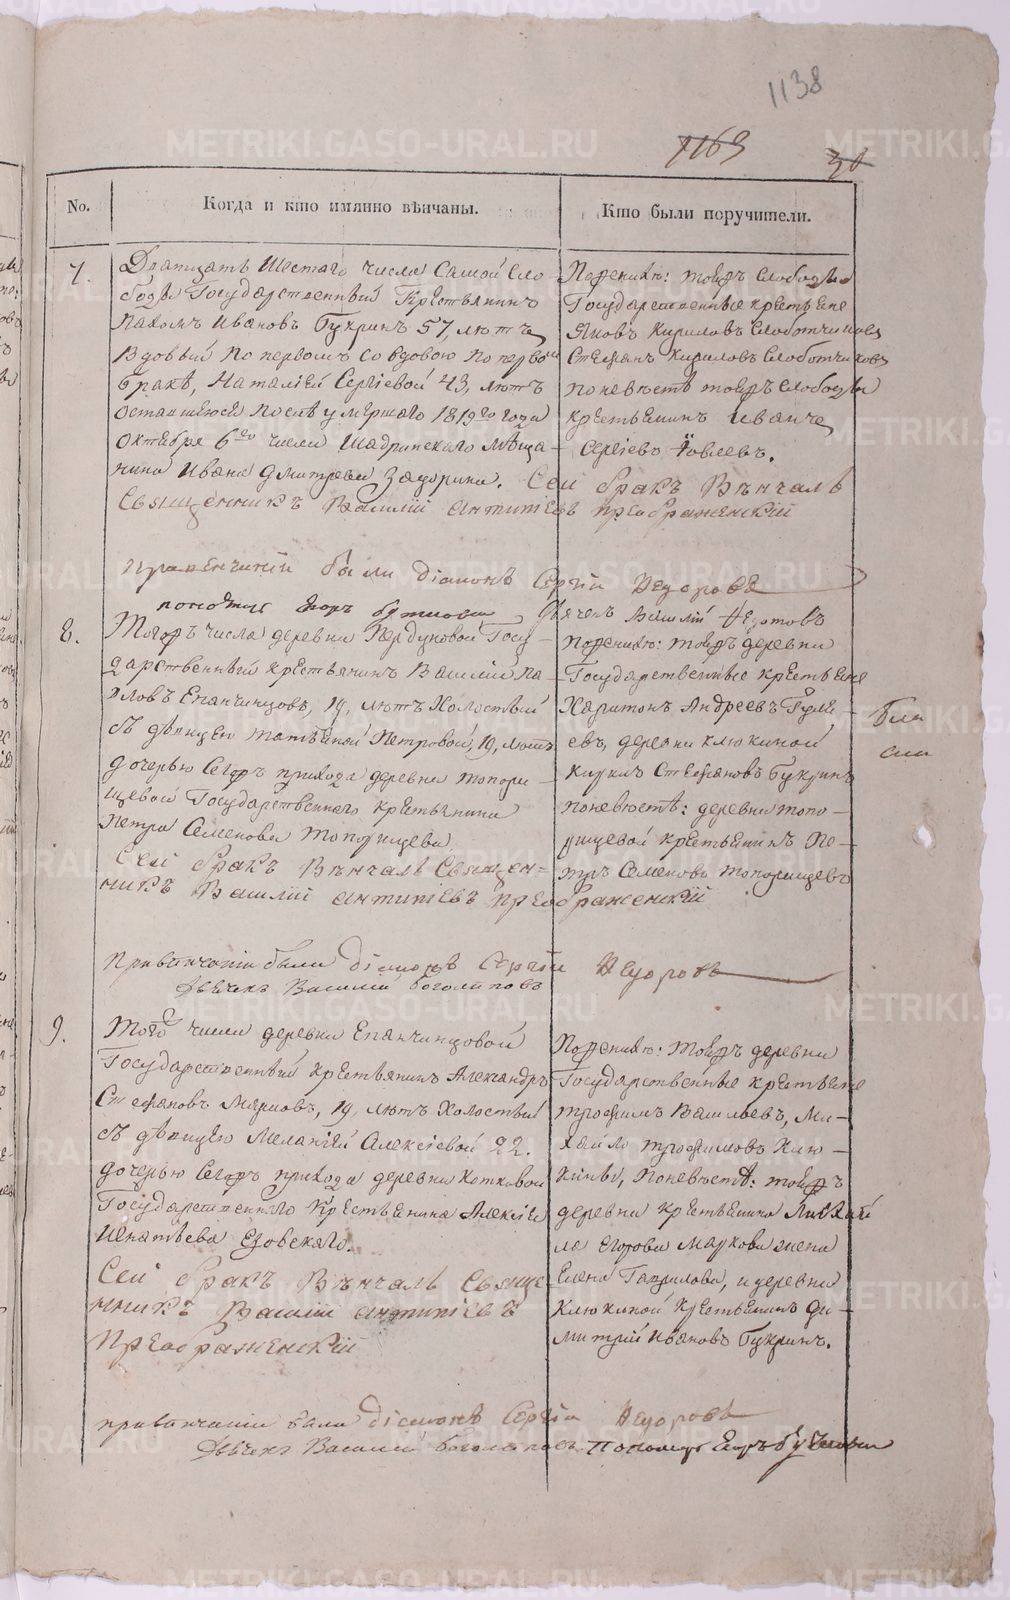 1138
1169
30
No.
Когда и кто имянно вѣнчаны.
Кто были поручители.
7.
Дватцать Шестаго числа Самой Сло-
боды Государственный Крестьянинъ
Пахомъ Ивановъ Букринъ 57, лѣтъ
Вдовый по первомъ со вдовою по первомъ
бракѣ, Наталіей Сергіевой 43, лѣтъ
оставшеюся послѣ умершаго 1819го года
Октября 6го числа Шадринскаго мѣща-
нина Ивана Дмитріева Задорина. Сей бракъ Вѣнчалъ
Священникъ Василій Антипіевъ Преображенскій
По женихѣ: тойжъ Слободы
Государственные крестьяне
Яковъ Кириловъ Слободчиковъ
Стефанъ Кириловъ Слободчиковъ
по невѣстѣ тойжъ Слободы
крестьянинъ Иванъ
Сергіевъ
При венчаніи были діаконъ Сергій Негоровъ
пономарь Егоръ Дьячекъ Василій
8.
Тогожъ числа деревни Государ-
дарственный крестьянинъ Василій Па-
вловъ Епанчинцовъ, 19, лѣтъ Холостый
съ дѣвицею Татьяной Петровой, 19, лѣтъ
дочерью Сегожъ прихода деревни Топори-
щевой Государственнаго крестьянина
Петра Семенова Топорищева.
Сей бракъ Вѣнчалъ Священ-
никъ Василій Антипіевъ Преображенскій
По женихѣ: тойжъ деревни
Государственные крестьяне
Харитонъ Андреевъ Гуля-
евъ, деревни Клюкиной
Стефановъ Букринъ
по невѣстѣ: деревни Топо-
рищевой крестьянинъ Пе-
тръ Семеновъ Топорищевъ
При вѣнчаніи были діаконъ Сергій Негоровъ
Дьячекъ Василій Боголеповъ
9.
Того числа деревни Епанчинцовой
Государственный крестьянинъ Александръ
Стефановъ Марковъ, 19, лѣтъ Холостый
съ дѣвицею Меланіей Алексіевой 22.
дочерью Сегожъ прихода деревни Котковой
Государственнаго Крестьянина Алексія
Игнатьева Езовскаго.
Сей бракъ Вѣнчалъ Священ-
нникъ Василій Антипіевъ
Преображенскій
По женихѣ: Тойжъ деревни
Государственные крестьяне
Трофимъ Васильевъ, Ми-
хайло Трофимовъ Клю-
кины, По невѣстѣ: тойжъ
деревни крестьянина
ла Егорова Маркова жена
Елена Гаврилова, и деревни
Клюкиной крестьянинъ Ди-
митрій Ивановъ Букринъ.
при вѣнчаніи были діаконъ Сергій Негоровъ
Дьячекъ Василій Боголеповъ Пономарь Егоръ